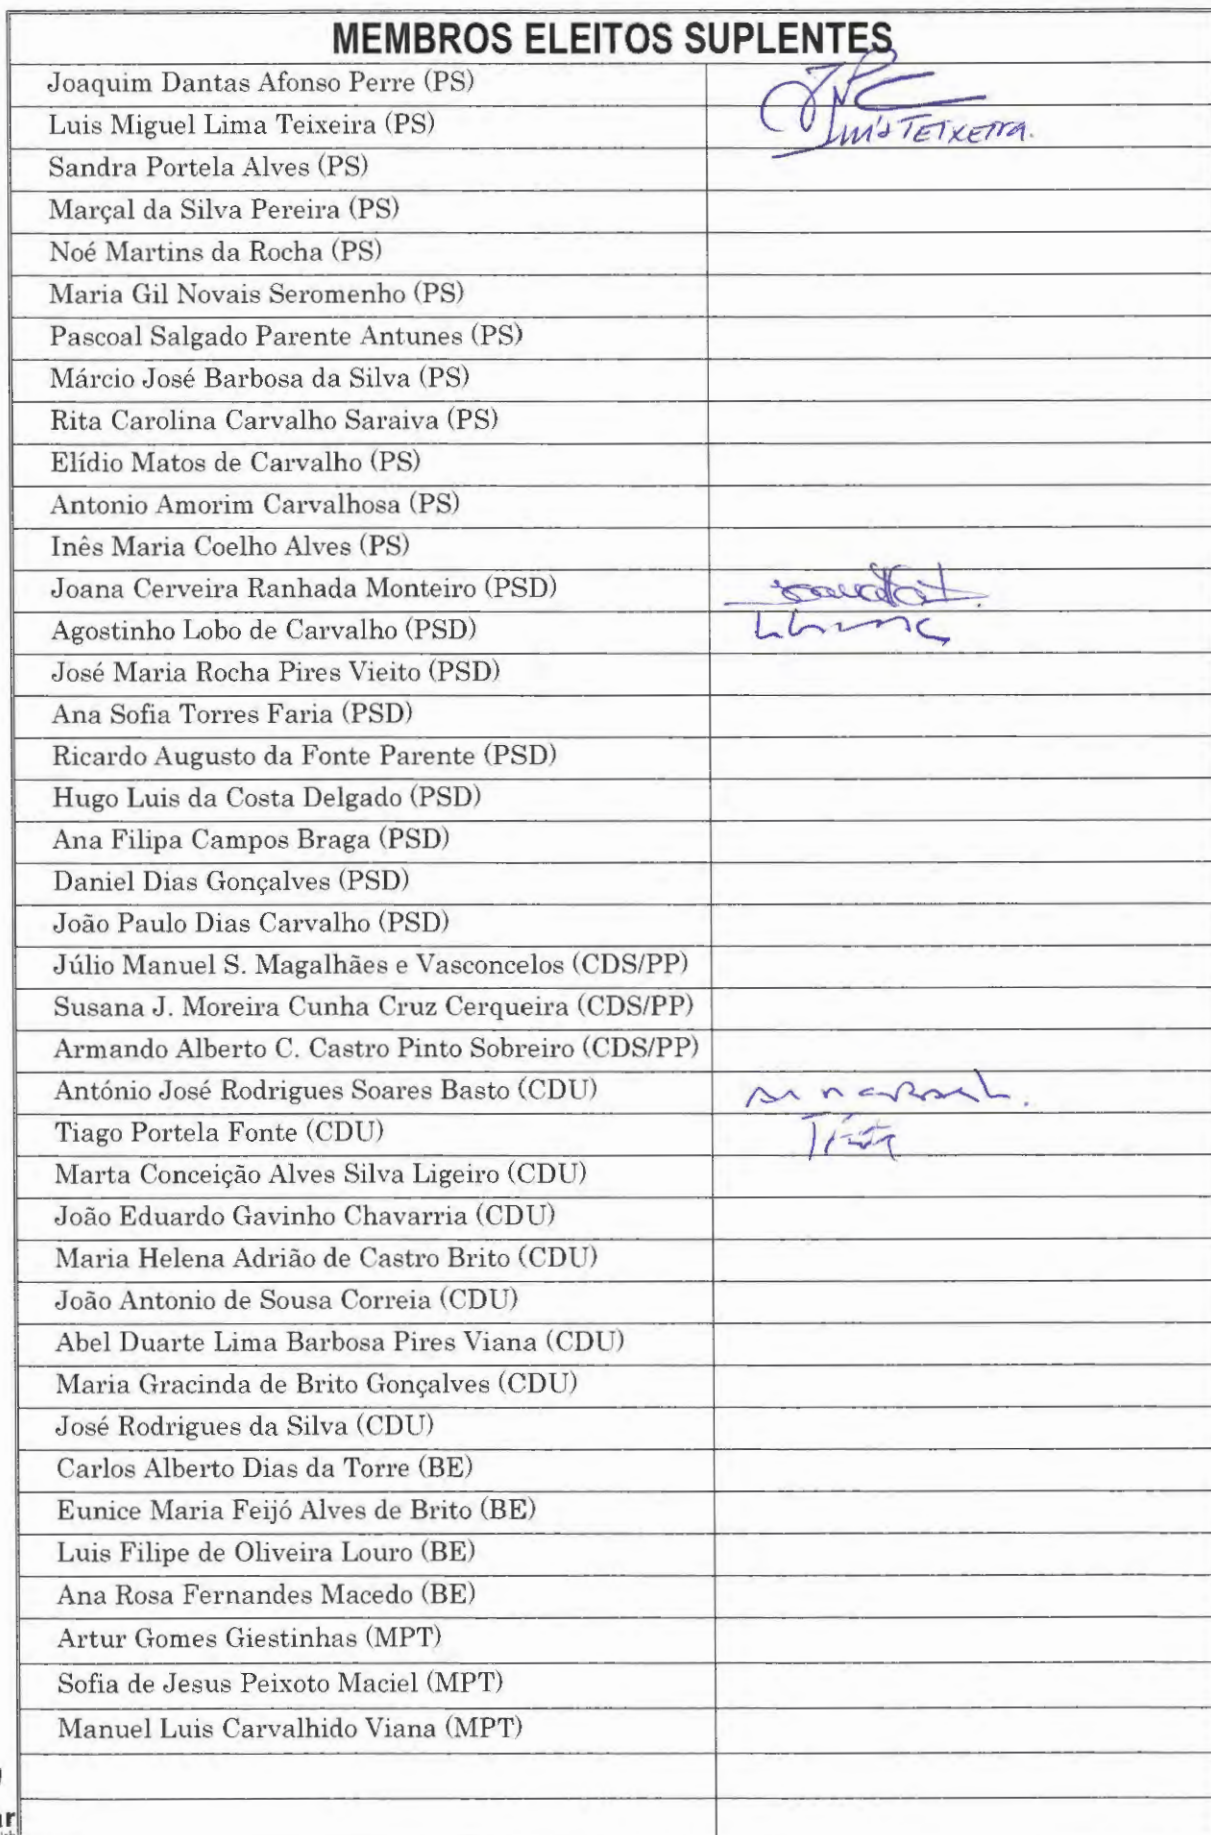 MEMBROS ELEITOS SUPLENTES
Joaquim Dantas Afonso Perre (PS)
Luis Miguel Lima Teixeira (PS) Luís TEIXEIRA.
Sandra Portela Alves (PS)
Marçal da Silva Pereira (PS)
Noé Martins da Rocha (PS)
Maria Gil Novais Seromenho (PS)
Pascoal Salgado Parente Antunes (PS)
Márcio José Barbosa da Silva (PS)
Rita Carolina Carvalho Saraiva (PS)
Elídio Matos de Carvalho (PS)
Antonio Amorim Carvalhosa (PS)
Inês Maria Coelho Alves (PS)
Joana Cerveira Ranhada Monteiro (PSD)
Agostinho Lobo de Carvalho (PSD)
José Maria Rocha Pires Vieito (PSD)
Ana Sofia Torres Faria (PSD)
Ricardo Augusto da Fonte Parente (PSD)
Hugo Luis da Costa Delgado (PSD)
Ana Filipa Campos Braga (PSD)
Daniel Dias Gonçalves (PSD)
João Paulo Dias Carvalho (PSD)
Júlio Manuel S. Magalhães e Vasconcelos (CDS/PP)
Susana J. Moreira Cunha Cruz Cerqueira (CDS/PP)
Armando Alberto C. Castro Pinto Sobreiro (CDS/PP)
António José Rodrigues Soares Basto (CDU)
Tiago Portela Fonte (CDU)
Marta Conceição Alves Silva Ligeiro (CDU)
João Eduardo Gavinho Chavarria (CDU)
Maria Helena Adrião de Castro Brito (CDU)
João Antonio de Sousa Correia (CDU)
Abel Duarte Lima Barbosa Pires Viana (CDU)
Maria Gracinda de Brito Gonçalves (CDU)
José Rodrigues da Silva (CDU)
Carlos Alberto Dias da Torre (BE)
Eunice Maria Feijó Alves de Brito (BE)
Luis Filipe de Oliveira Louro (BE)
Ana Rosa Fernandes Macedo (BE)
Artur Gomes Giestinhas (MPT)
Sofia de Jesus Peixoto Maciel (MPT)
Manuel Luis Carvalhido Viana (MPT)